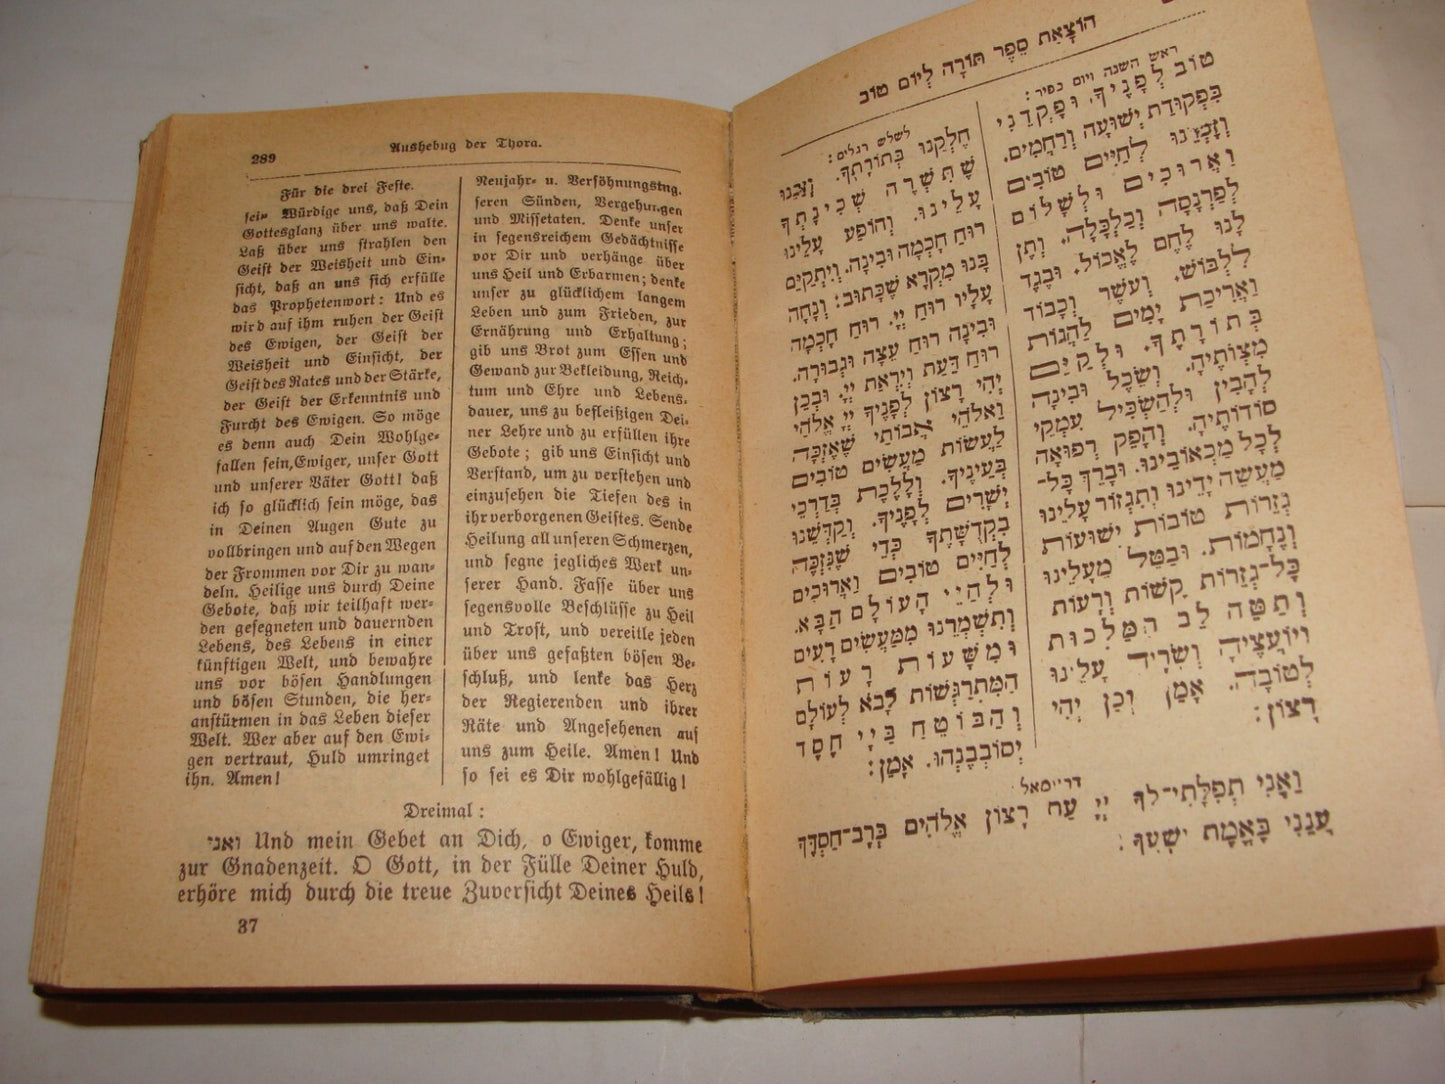 289
Aushebug der Thora.
Für die drei Feste.
sein. Würdige uns, daß Dein
Gottesglanz über uns walte.
Laß über uns strahlen den
Geist der Weisheit und Ein-
sicht, daß an uns sich erfülle
das Prophetenwort: Und es
wird auf ihm ruhen der Geist
des Ewigen, der Geist der
Weisheit und Einsicht, der
Geist des Rates und der Stärke,
der Geist der Erkenntnis und
Furcht des Ewigen. So möge
es denn auch Dein Wohlge-
fallen sein, Ewiger, unser Gott
und unserer Väter Gott! daß
ich so glücklich sein möge, das
in Deinen Augen Gute zu
vollbringen und auf den Wegen
der Frommen vor Dir zu wan-
deln. Heilige uns durch Deine
Gebote, daß wir teilhaft wer-
den gesegneten und dauernden
Lebens, des Lebens in einer
künftigen Welt, und bewahre
uns vor bösen Handlungen
und bösen Stunden, die her-
anstürmen in das Leben dieser
Welt. Wer aber auf den Ewi-
gen vertraut, Huld umringet
ihn. Amen!
Neujahr- u. Versöhnungstag.
seren Sünden, Vergehungen
und Missetaten. Denke unser
in segensreichem Gedächtnisse
vor Dir und verhänge über
uns Heil und Erbarmen; denke
unser zu glücklichem langem
Leben und zum Frieden, zur
Ernährung und Erhaltung;
gib uns Brot zum Essen und
Gewand zur Bekleidung, Reich-
tum und Ehre und Lebens-
dauer, uns zu befleißigen Dei-
ner Lehre und zu erfüllen ihre
Gebote; gib uns Einsicht und
Verstand, um zu verstehen und
einzusehen die Tiefen des in
ihr verborgenen Geistes. Sende
Heilung all unseren Schmerzen,
und segne jegliches Werk un-
serer Hand. Fasse über uns
segensvolle Beschlüsse zu Heil
und Trost, und vereitle jeden
über uns gefaßten bösen Be-
schluß, und lenke das Herz
der Regierenden und ihrer
Räte und Angesehenen auf
uns zum Heile. Amen! Und
so sei es Dir wohlgefällig!
Dreimal:
ואני Und mein Gebet an Dich, o Ewiger, komme
zur Gnadenzeit. O Gott, in der Fülle Deiner Huld,
erhöre mich durch die treue Zuversicht Deines Heils!
37
הוֹצָאַת סֵפֶר תּוֹרָה לְיוֹם טוֹב
ראש השנה ויום כפור:
טוֹב לְפָנֶיךָ. וּפָקְדֵנִי
בִּפְקוּדַת יְשׁוּעָה וְרַחֲמִים.
וְזָכְרֵנוּ לְחַיִּים טוֹבִים
וַאֲרוּכִים וּלְשָׁלוֹם
לְפַרְנָסָה וְכַלְכָּלָה. וְתֶן
לָנוּ לֶחֶם לֶאֱכוֹל. וּבֶגֶד
לִלְבּוֹשׁ. וְעשֶׁר וְכָבוֹד
וַאֲרִיכַת יָמִים לַהֲגוֹת
בְּתוֹרָתֶךָ. וּלְקַיֵּם
מִצְוֹתֶיהָ. וְשֵׂכֶל וּבִינָה
לְהָבִין וּלְהַשְׂכִּיל עִמְקֵי
סוֹדוֹתֶיהָ. וְהָפֵק רְפוּאָה
לְכָל מַכְאוֹבֵינוּ. וּבָרֵךְ כָּל־
מַעֲשֵׂה יָדֵינוּ וְתִגְזוֹר עָלֵינוּ
גְּזֵרוֹת טוֹבוֹת יְשׁוּעוֹת
וְנֶחָמוֹת. וּבַטֵּל מֵעָלֵינוּ
כָּל־גְּזֵרוֹת קָשׁוֹת וְרָעוֹת
וְתַטֶּה לֵב הַמַּלְכוּת
וְיוֹעֲצֶיהָ וְשָׂרֶיהָ עָלֵינוּ
לְטוֹבָה. אָמֵן וְכֵן יְהִי
רָצוֹן:
לשלש רגלים:
חֶלְקֵנוּ בְּתוֹרָתֶךָ. וְזַכֵּנוּ
שֶׁתִּשְׁרֶה שְׁכִינָתְךָ
עָלֵינוּ. וְהוֹפַע עָלֵינוּ
רוּחַ חָכְמָה וּבִינָה. וְיִתְקַיֵּם
בָּנוּ מִקְרָא שֶׁכָּתוּב: וְנָחָה
עָלָיו רוּחַ יְיָ. רוּחַ חָכְמָה
וּבִינָה רוּחַ עֵצָה וּגְבוּרָה.
רוּחַ דַּעַת וְיִרְאַת יְיָ. וּבְכֵן
יְהִי רָצוֹן לְפָנֶיךָ יְיָ אֱלֹהַי
וֵאלֹהֵי אֲבוֹתַי שֶׁאֶזְכֶּה
לַעֲשׂוֹת מַעֲשִׂים טוֹבִים
בְּעֵינֶיךָ. וְלָלֶכֶת בְּדַרְכֵי
יְשָׁרִים לְפָנֶיךָ. וְקַדְּשֵׁנוּ
בִּקְדֻשָּׁתֶךָ כְּדֵי שֶׁנִּזְכֶּה
לְחַיִּים טוֹבִים וַאֲרוּכִים
וּלְחַיֵּי הָעוֹלָם הַבָּא.
וְתִשְׁמְרֵנוּ מִמַּעֲשִׂים רָעִים
וּמִשָּׁעוֹת רָעוֹת
הַמִּתְרַגְּשׁוֹת לָבֹא לְעוֹלָם
וְהַבּוֹטֵחַ בַּיְיָ חֶסֶד
יְסוֹבְבֶנְהוּ. אָמֵן:
וַאֲנִי תְפִלָּתִי־לְךָ יְיָ עֵת רָצוֹן אֱלֹהִים בְּרָב־חַסְדֶּךָ
עֲנֵנִי בֶּאֱמֶת יִשְׁעֶךָ: